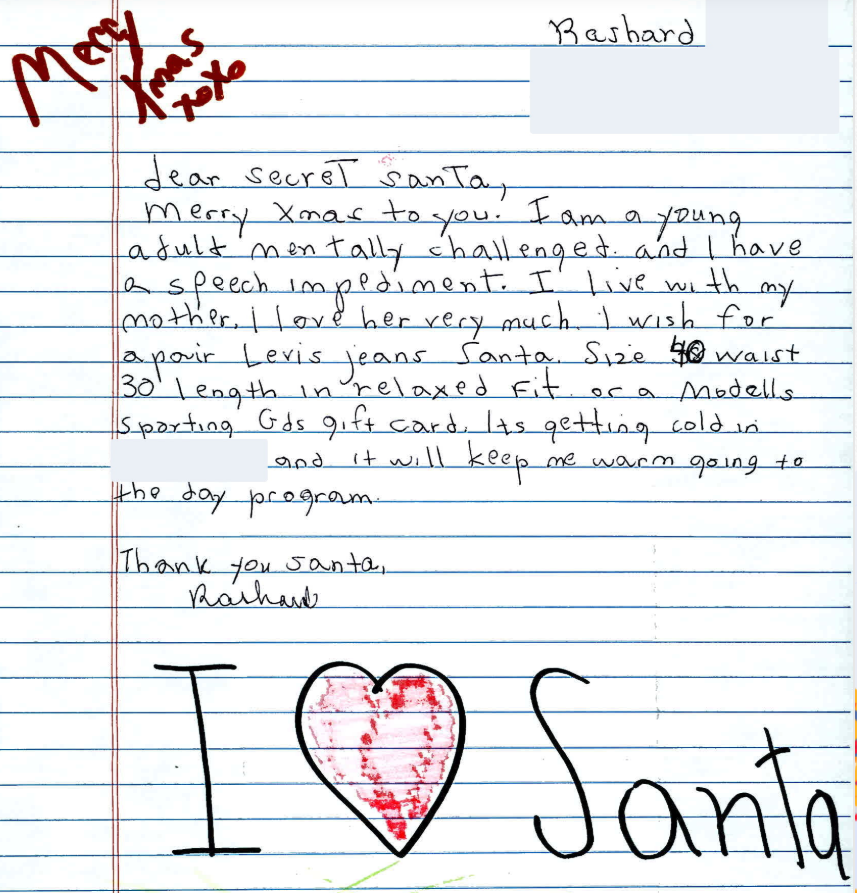 Merry
Xmas
xoxo
Rashard
dear secret santa,
Merry Xmas to you. I am a young
adult mentally challenged. and I have
a speech impediment. I live with my
mother, I love her very much. I wish for
a pair Levis jeans Santa. Size 40 waist
30 length in relaxed Fit. or a Modells
Sporting Gds gift card. Its getting cold in
and it will keep me warm going to
the day program.
Thank you santa,
Rashard
I Santa